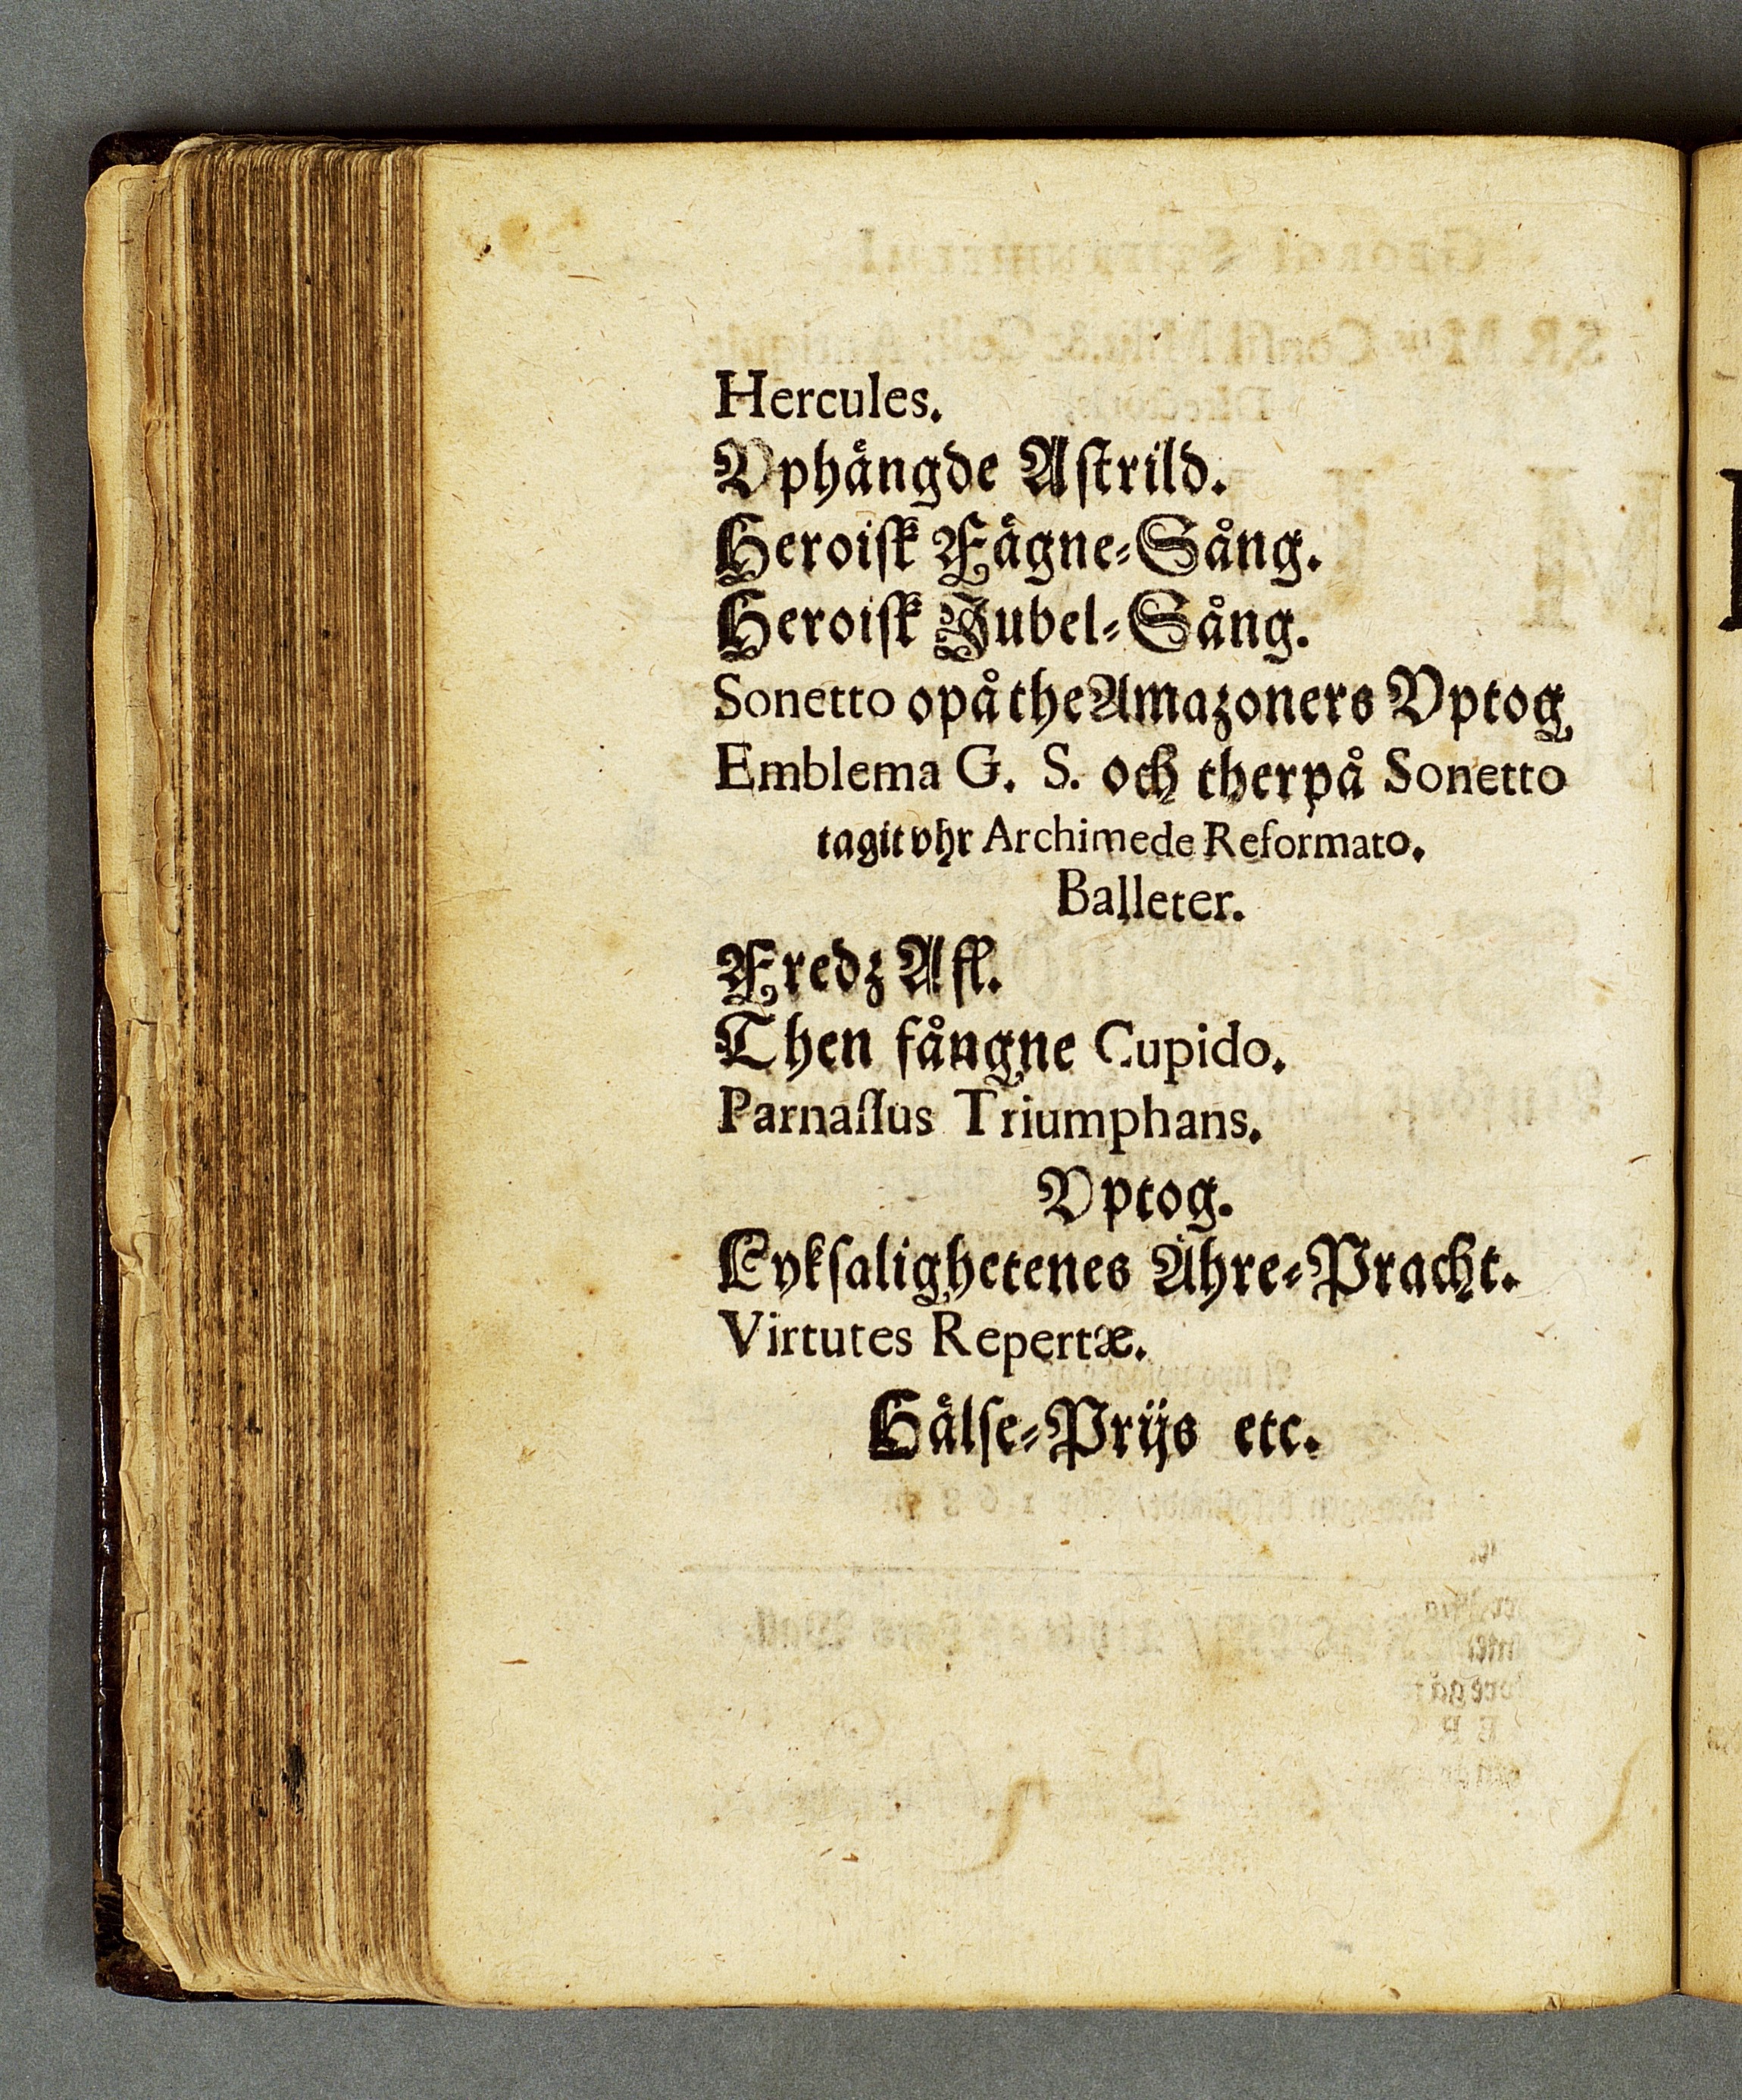 Hercules.
Vphängde Aſtrild.
Heroiſk Fägne-Sång.
Heroiſk Jubel-Sång.
Sonetto opå the Amazoners Vptog
Emblema G. S. och therpå Sonetto
tagit vhr Archimede Reformato.
Balleter.
Fredz Afl.
Then fångne Cupido.
Parnaſſus Triumphans.
Vptog.
Lykſalighetenes Ähre-Pracht.
Virtutes Repertæ.
Hälſe-Prijs etc.